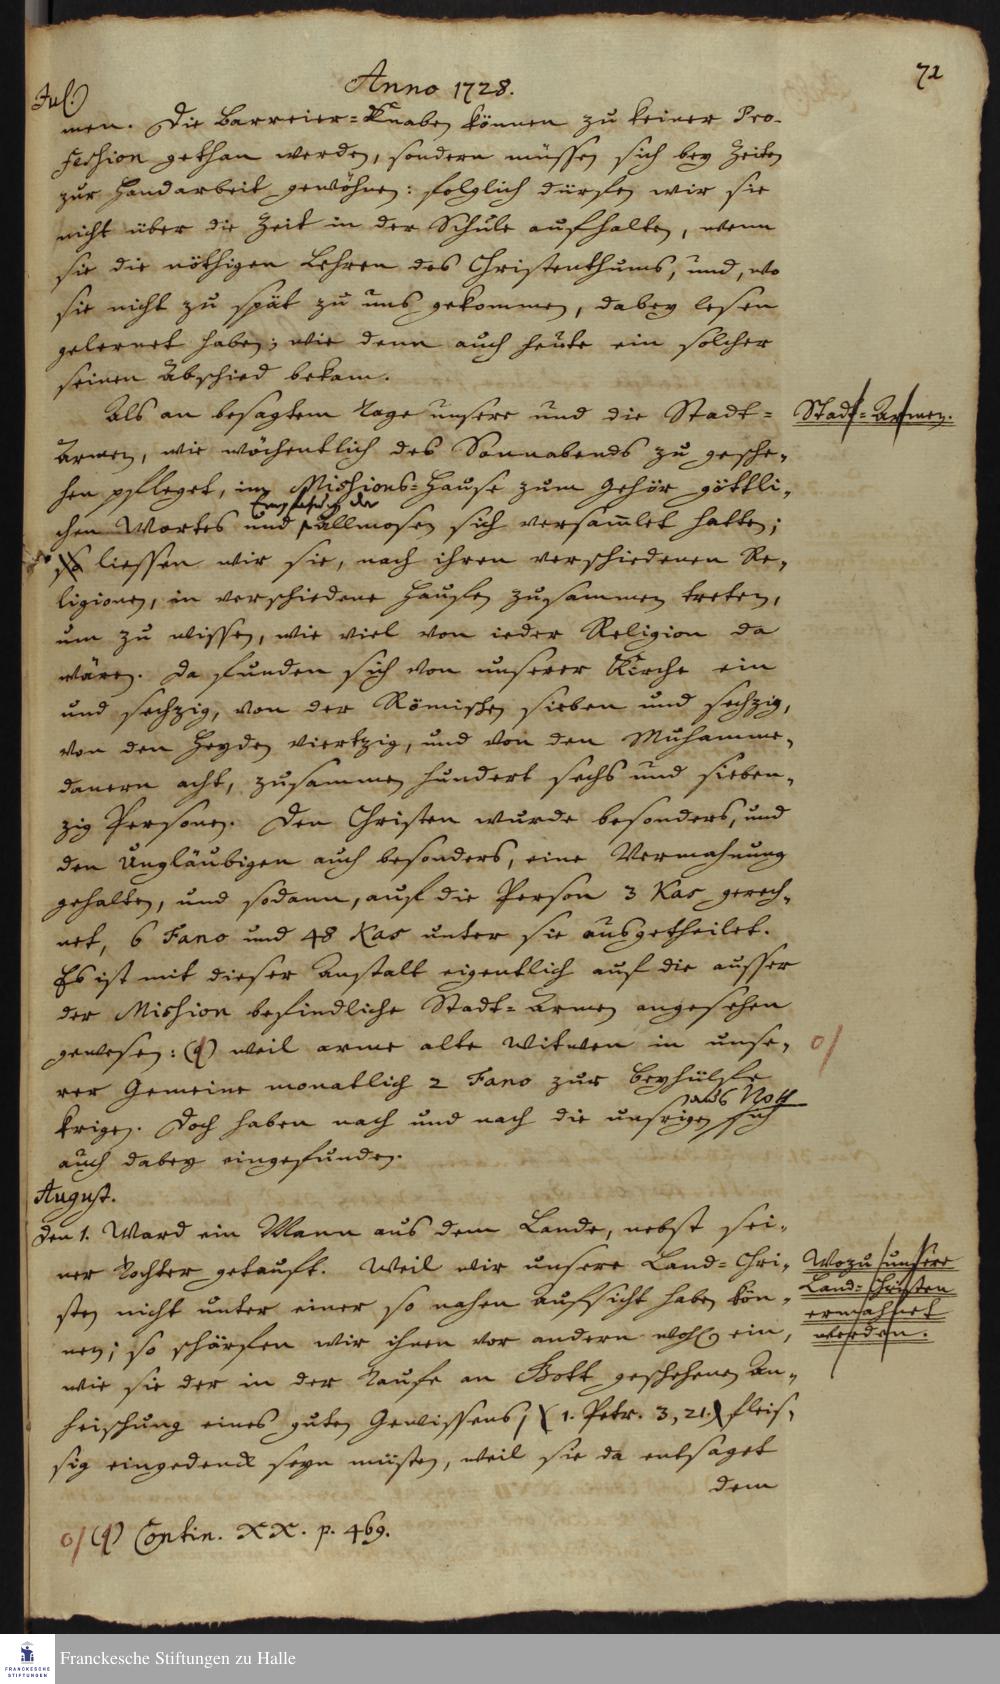 72
Anno 1728.
Jul.
men. Die Barreier-Knaben können zu keiner Pro-
feshion gethan werden, sondern müssen sich bey Zeiten
zur Handarbeit gewöhnen: folglich dürfen wir sie
nicht über die Zeit in der Schule aufhalten, wenn
sie die nöthigen Lehren des Christenthums, und, wo
sie nicht zu spät zu uns gekommen, dabey lesen
gelernet haben; wie denn auch heute ein solcher
seinen Abschied bekam.
Als an besagtem Tage unsere und die Stadt-
Stadt-Armen.
Armen, wie wöchentlich des Sonnabends zu gesche-
hen pfleget, im Mishions-Hause zum Gehör göttli-
chen Wortes und Empfahung der Allmosen sich versam̄let hatten;
so liessen wir sie, nach ihren verschiedenen Re-
ligionen, in verschiedene Haufen zusammen treten,
um zu wissen, wie viel von ieder Religion da
wären. Da funden sich von unserer Kirche ein
und sechzig, von der Römischen sieben und sechzig,
von den Heyden viertzig, und von den Muhamme-
danern acht, zusammen hundert sechs und sieben-
zig Personen. Den Christen wurde besonders, und
den Ungläubigen auch besonders, eine Vermahnung
gehalten, und sodann, auf die Person 3 Kas gerech-
net, 6 Fano und 48 Kas unter sie ausgetheilet.
Es ist mit dieser Anstalt eigentlich auf die ausser
der Mishion befindliche Stadt-Armen angesehen
gewesen: (q) weil arme alte Witwen in unse-
o/
rer Gemeine monatlich 2 Fano zur Beyhülfe
kriegen. Doch haben nach und nach die unsrigen aus Noth sich
auch dabey eingefunden.
August.
den 1. Ward ein Mann aus dem Lande, nebst sei-
ner Tochter getauft. Weil wir unsere Land-Chri-
Wozu unsere
sten nicht unter einer so nahen Aufsicht haben kön-
Land-Christen
ermahnet
nen; so schärfen wir ihnen vor andern wohl ein,
werden.
wie sie der in der Taufe an Gott geschehenen An-
heischung eines guten Gewissens, (1. Petr. 3, 21.) fleis-
sig eingedenck seyn müsten, weil sie da entsaget
dem
o/ (q) Contin. XX. p. 469.
Franckesche Stiftungen zu Halle
FRANCKESCHE
STIFTUNGEN